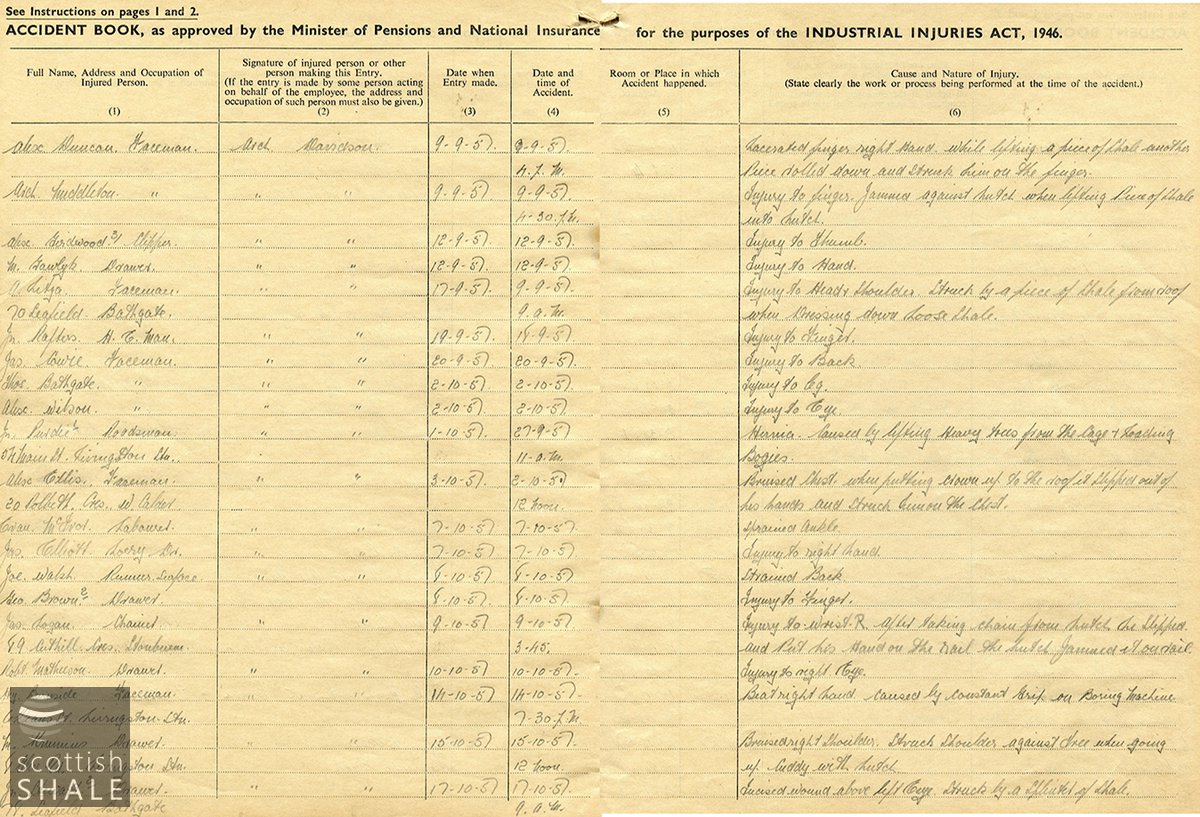 See Instructions on pages 1 and 2.
ACCIDENT BOOK, as approved by the Minister of Pensions and National Insurance for the purposes of the INDUSTRIAL INJURIES ACT, 1946.
Full Name, Address and Occupation of Injured Person. (1)
Signature of injured person or other person making this Entry. (If the entry is made by some person acting on behalf of the employee, the address and occupation of such person must also be given.) (2)
Date when Entry made. (3)
Date and time of Accident. (4)
Room or Place in which Accident happened. (5)
Cause and Nature of Injury. (State clearly the work or process being performed at the time of the accident.) (6)
Alex Duncan Faceman. Arch Davidson. 9-9-57. 9-9-57. Lacerated finger right Hand while lifting a piece of shale another
4.P.M. Piece rolled down and Struck him on the finger.
Arch Middleton " " " 9-9-57. 9-9-57. Injury to finger. Jammed against hutch when lifting Piece of Shale
4-30.P.M. into hutch.
Alex Girdwood Clipper. " " 12-9-57. 12-9-57. Injury to Thumb.
M. Drawer. " " 12-9-57. 12-9-57. Injury to Hand.
Faceman. " " 17-9-57. 9-9-57. Injury to Head & Shoulder. Struck by a piece of Shale from roof
70 Leafield. Bathgate. 9.a.M. when Dressing down Loose Shale.
Jn. Rafters H.C. Man. " " 19-9-57. 19-9-57. Injury to Finger.
Jas. Lowrie Faceman. " " 20-9-57. 20-9-57. Injury to Back.
Thos. Bathgate. " " " 2-10-57. 2-10-57. Injury to
Alex. Wilson. " " " 2-10-57. 2-10-57. Injury to Eye.
Jn. Purdie Roadsman " " 1-10-57. 27-9-57 Hernia. Caused by lifting Heavy trees from the Cage & Loading
Main St. Livingston Stn. 11-a.M. Bogies.
Alex Ellis. Faceman. " " 3-10-57. 2-10-57. Bruised Chest. when putting crown up to the roof it slipped out of
20 Polbeth Cres. W. Calder 12 noon. his hands and Struck him on the Chest.
Labourer. " " 7-10-57. 7-10-57. Sprained Ankle.
Jas. Elliott. Lorry Dr. " " 7-10-57. 7-10-57. Injury to right hand.
Joe. Walsh Runner. Surface. " " 8-10-57 8-10-57 Strained Back
Geo. Brown Drawer. " " 8-10-57. 8-10-57. Injury to Finger.
Jas. Logan. Chainer " " 9-10-57. 9-10-57. Injury to Wrist R. After taking chain from hutch he slipped
Cres. Stoneyburn. 3-45. and Put his Hand on the rail. the hutch Jammed it on rail.
Robt Mathieson Drawer. " " 10-10-57. 10-10-57. Injury to right Eye.
Faceman " " 14-10-57 14-10-57. Beat right hand caused by constant Grip on Boring Machine
Livingston Stn. 7-30.P.M.
Drawer. " " 15-10-57 15-10-57. Bruised right Shoulder. Struck Shoulder against tree when going
Stn. 12 noon. up Cuddy with hutch
" " 17-10-57. 17-10-57. Incised wound above left Eye. Struck by a Splinter of shale.
Leafield Bathgate 9.a.M.
scottish
SHALE